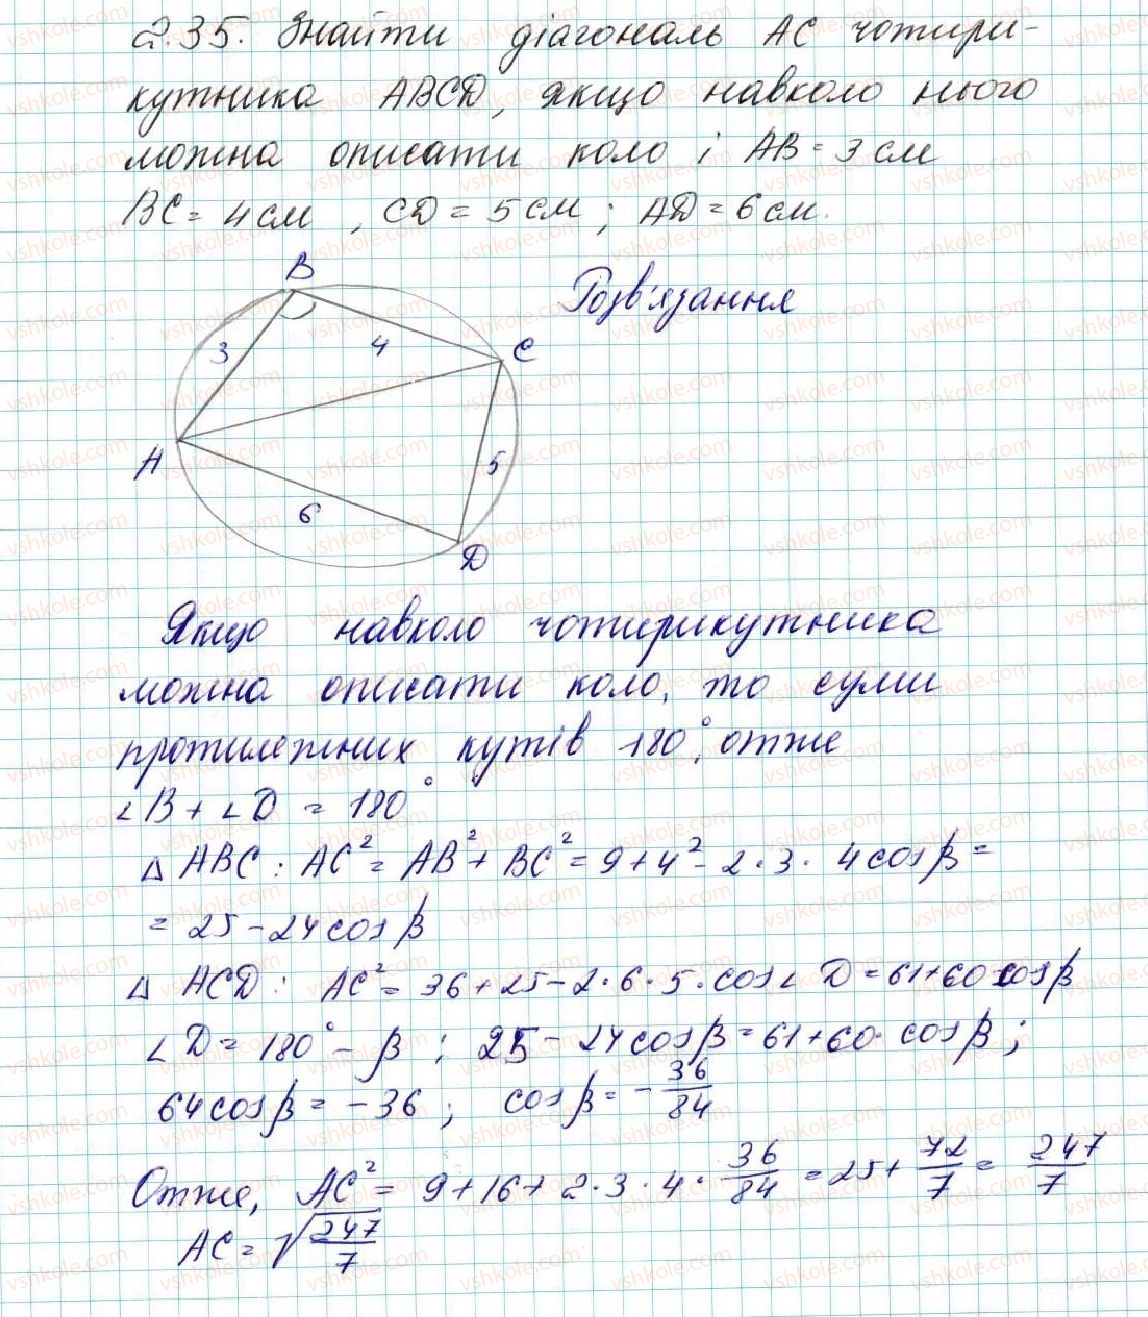 2.35. Знайти діагональ AC чотири-
кутника ABCD, якщо навколо нього
можна описати коло і AB = 3 см
BC = 4 см , CD = 5 см ; AD = 6 см.
B
Розв'язання
3
4
C
A
5
6
D
Якщо навколо чотирикутника
можна описати коло, то суми
протилежних кутів 180°, отже
∠B + ∠D = 180°
△ ABC : AC² = AB² + BC² = 9 + 4² - 2 · 3 · 4 cos β =
= 25 - 24 cos β
△ ACD : AC² = 36 + 25 - 2 · 6 · 5 · cos ∠ D = 61 + 60 cos β
∠D = 180° - β ; 25 - 24 cos β = 61 + 60 · cos β ;
64 cos β = -36 ; cos β = - 36/84
Отже, AC² = 9 + 16 + 2 · 3 · 4 · 36/84 = 25 + 72/7 = 247/7
AC = √247/7
vshkole.com